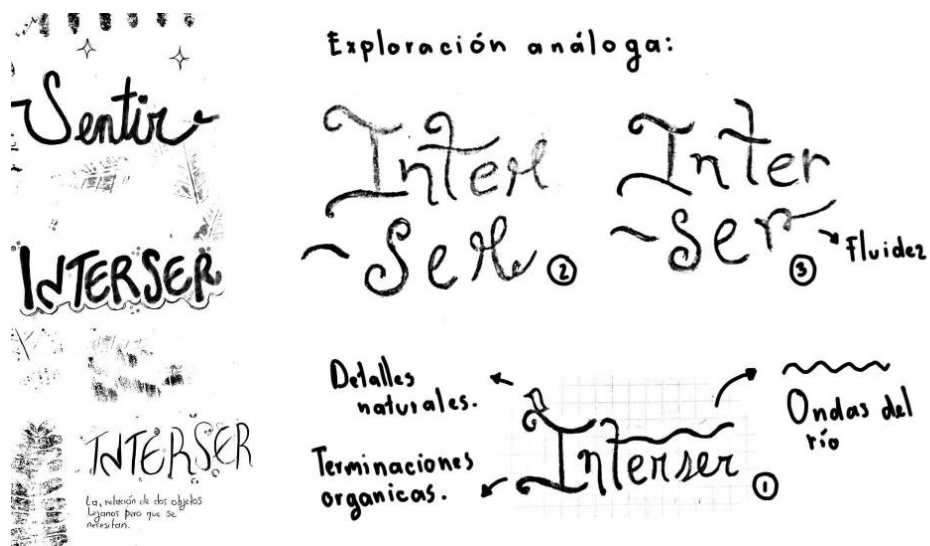 Sentir
INTERSER
INTERSER
La, relación de dos objetos
Lejanos pero que se
necesitan.
Exploración análoga:
Inter
~Ser ②
Inter
~Ser ③
Fluidez
Detalles
naturales.
Terminaciones
organicas.
Interser ①
Ondas del
río